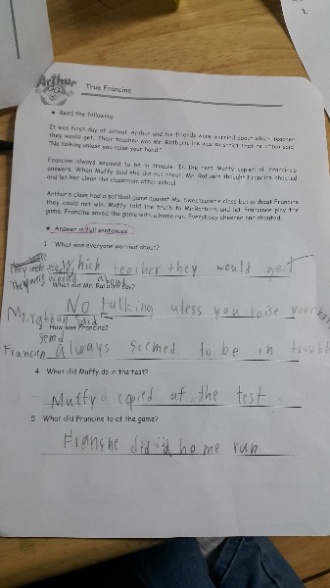 2
Arthur
True Francine
★ Read the following
It was first day of school. Arthur and his friends were worried about which teacher
they would get. Their teacher was Mr. Ratburn. He was so strict that he often said
"No talking unless you raise your hand."
Francine always seemed to be in trouble. In the test Muffy copied all Francine's
answers. When Muffy said she did not cheat, Mr. Ratburn thought Francine cheated
and let her clean the classroom after school.
Arthur's class had a softball game against Ms. Sweetwater's class but without Francine
they could not win. Muffy told the truth to Mr. Ratburn and let Francine play the
game. Francine saved the game with a home run. Everybody cheered and shouted.
★ Answer in full sentences
1 What was everyone worried about?
They were which teacher they would get
They were woried about
2 What did Mr. Ratburn say?
No talking uless you raise your
Mr. ratbun said
3 How was Francine?
Francien always seemed to be in trouble
4 What did Muffy do in the test?
Muffy copied at the test
5 What did Francine do at the game?
did home run